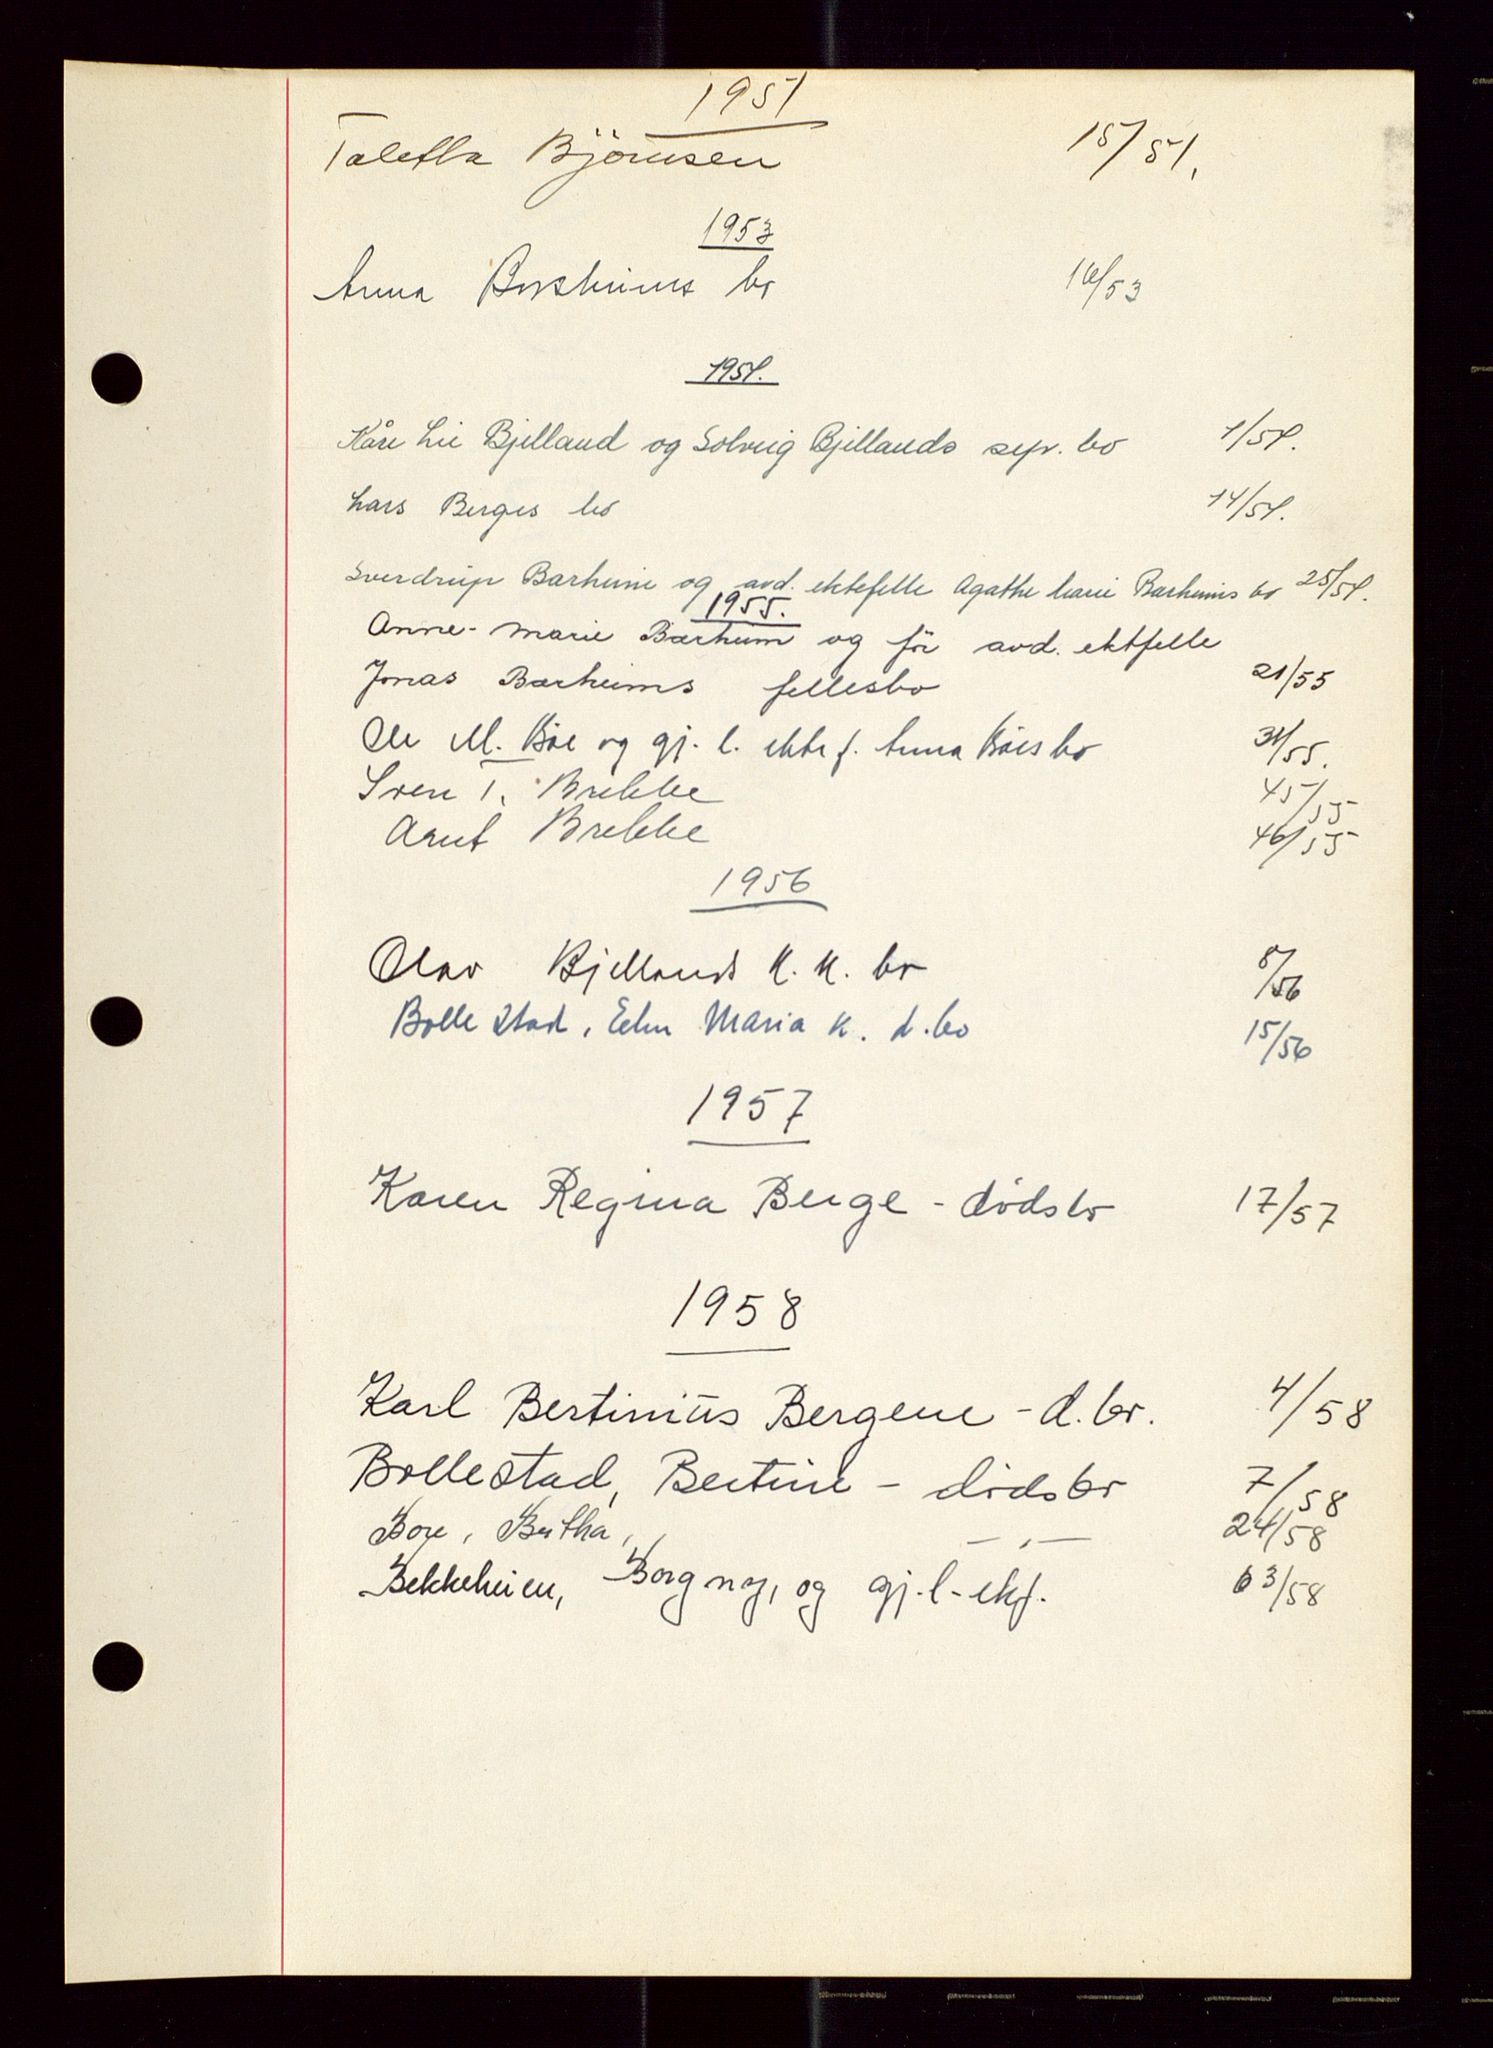 1951
Taletta Björnsen 15/51.
1953
Anna Borsheims bo 16/53
1954.
Kåre Lie Bjelland og Solveig Bjellands sepr. bo 1/54.
Lars Berges bo 14/54.
Sverdrup Barheim og avd. ektefelle Agathe Marie Barheims bo 25/54.
1955.
Anne-Marie Bærheim og för avd. ektfelle
Jonas Bærheims fellesbo 21/55
Ole M. Böe og gj. l. ektef. Anna Böes bo 31/55.
Sven T. Brekke 45/55
Arnt Brekke 46/55
1956
Olav Bjellands K. K. bo 8/56
Bollestad, Maria K. d.bo 15/56
1957
Karen Regina Berge - dödsbo 17/57
1958
Karl Bertinius Bergene - d. bo. 4/58
Bollestad, Bertine - dödsbo 7/58
Bore, Bertha, — , — 24/58
Bekkeheien, Borgny, og gj. l. ekf. 63/58